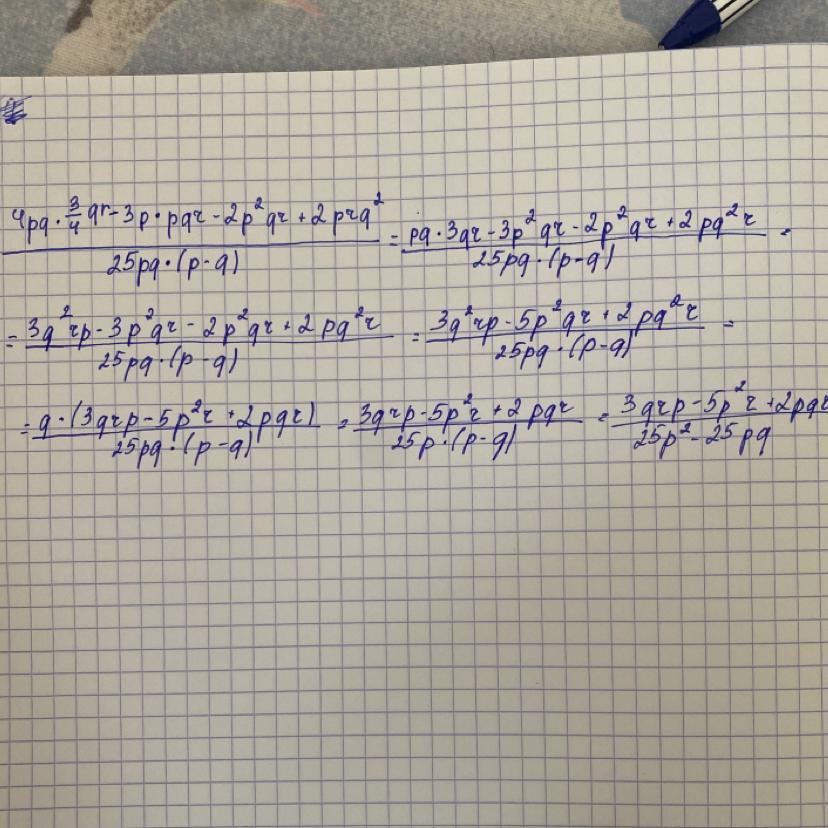 (4pq · 3/4 qr - 3p · pqr - 2p²qr + 2prq²) / (25pq · (p - q)) = (pq · 3qr - 3p²qr - 2p²qr + 2pq²r) / (25pq · (p - q)) =
= (3q²rp - 3p²qr - 2p²qr + 2pq²r) / (25pq · (p - q)) = (3q²rp - 5p²qr + 2pq²r) / (25pq · (p - q)) =
= q · (3qrp - 5p²r + 2pqr) / (25pq · (p - q)) = (3qrp - 5p²r + 2pqr) / (25p · (p - q)) = (3qrp - 5p²r + 2pqr) / (25p² - 25pq)